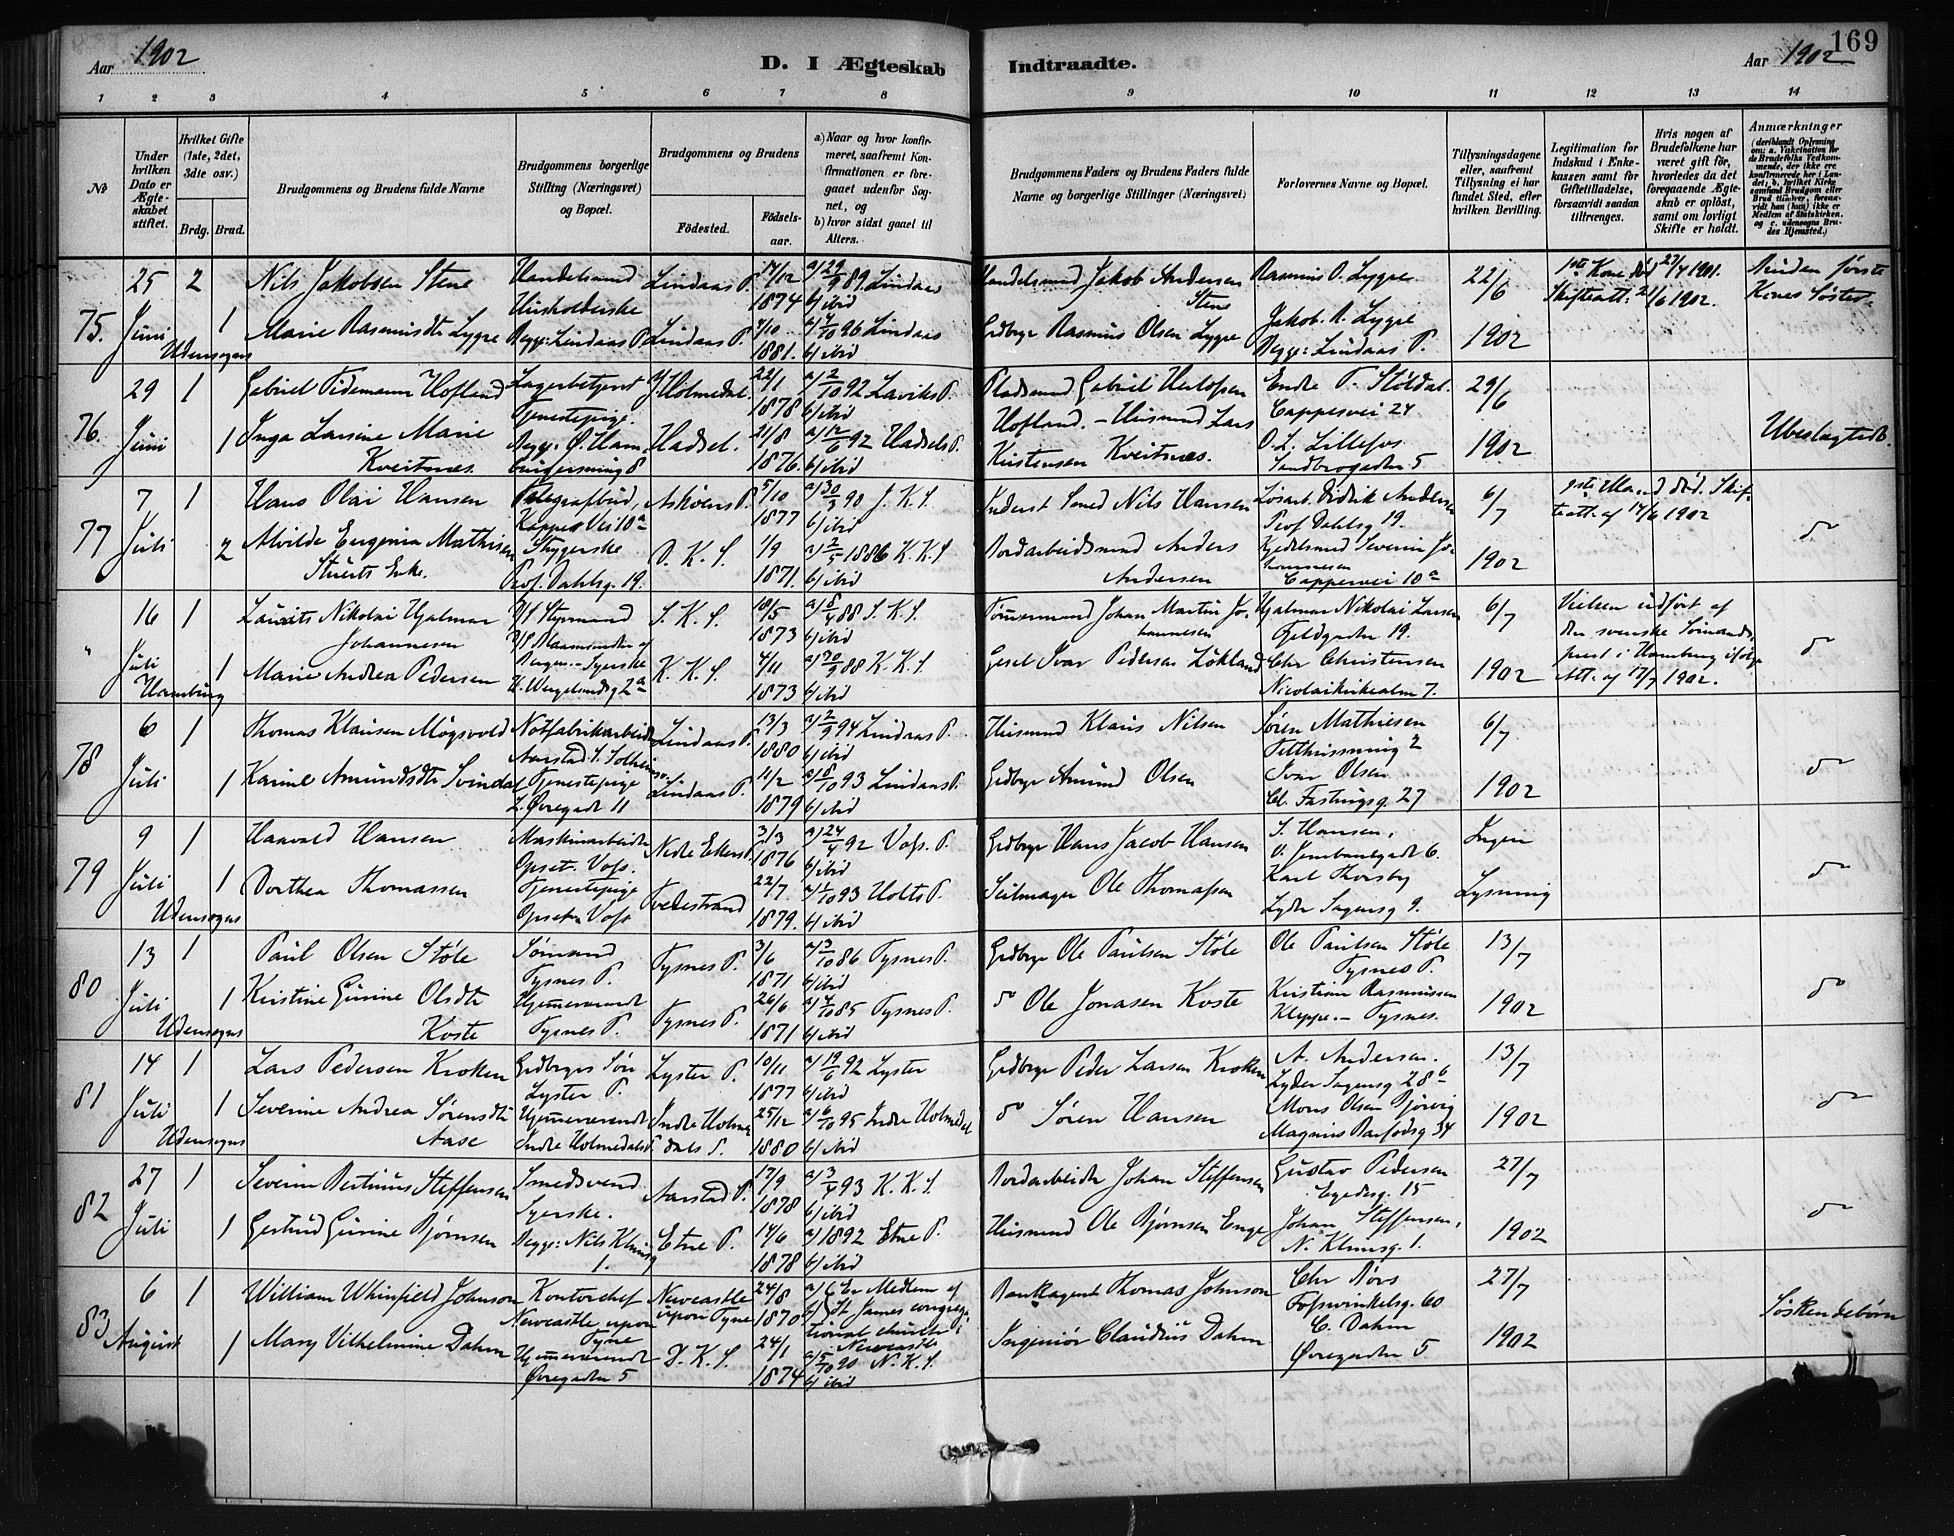 169
Aar 1902
D. I Ægteskab Indtraadte.
Aar 1902
1 2 3 4 5 6 7 8 9 10 11 12 13 14
No
Under hvilken Dato er Ægteskabet stiftet.
Hvilket Gifte (1ste, 2det, 3die osv.)
Brdg. Brud.
Brudgommens og Brudens fulde Navne
Brudgommens borgerlige Stilling (Næringsvei) og Bopæl.
Brudgommens og Brudens
Fødested.
Fødselsaar.
a) Naar og hvor konfirmeret, saafremt Konfirmationen er foregaaet udenfor Sognet, og
b) hvor sidst gaaet til Alters.
Brudgommens Faders og Brudens Faders fulde Navne og borgerlige Stillinger (Næringsvei)
Forlovernes Navne og Bopæl.
Tillysningsdagene eller, saafremt Tillysning ei har fundet Sted, efter hvilken Bevilling.
Legitimation for Indskud i Enkekassen samt for Giftetilladelse, forsaavidt saadan tiltrænges.
Hvis nogen af Brudefolkene har været gift før, hvorledes da det foregaaende Ægteskab er opløst, samt om lovligt Skifte er holdt.
Anmærkninger
75.
25 Juni Udensogns
2
Nils Jakobsen Stene
Handelsmand
Lindaas P.
14/12 1874
a) 29/9 89 Lindaas
b) ibid
Handelsmand Jakob Andersen Stene
Rasmus O. Lygre
22/6 1902
1ste Kone død 27/4 1901.
Skifteatt. 21/6 1902.
Bruden første Kones Søster.
1
Marie Rasmusdtr Lygre
Husholderske
Begge: Lindaas P.
Lindaas P.
4/10 1881.
a) 4/10 96 Lindaas
b) ibid
Grdbrgr Rasmus Olsen Lygre
Jakob R. Lygre
Begge: Lindaas P.
76.
29 Juni
1
Gabriel Tidemann Hofland
Lagerbetjent
Y. Holmedal.
22/1 1878
a) 2/10 92 Laviks P.
b) ibid
Pladsmd Gabriel Herlofsen Hofland. – Husmand Lars Kristensen Kveitnæs.
Endre T. Støldal.
Cappesvei 24
29/6 1902
Ubeslægtede.
1
Inga Larsine Marie Kveitnes.
Tjenestepige.
Hadsel.
21/8 1876.
a) 12/6 92 Hadsels P.
b) ibid
O. L. Lillefos.
Sandbrogaden 5
77
7 Juli
1
Hans Olai Hansen
Telegrafbud,
Kappes Vei 10a
Askøens P.
5/10 1877
a) 30/3 90 J. K. S.
b) ibid
Inderst Smed Nils Hansen
Løsarb. Didrik Andersen
Prof Dahlsg 19.
6/7 1902
1ste Mand død. Skifteatt. af 14/6 1902
do
2
Alvilde Eugenia Mathisen Stuerts Enke.
Strygerske
Prof. Dahlsg. 19.
D. K. S.
1/9 1871.
a) 2/5 1886 K. K. S.
b) ibid
Bordarbeidsmand Anders Andersen
Kjedelsmed Severin Johannesen
Cappesvei 10a
"
16 Juli Hamburg
1
Laurits Nikolai Hjalmar Johannesen
Styrmand
Bergen. – Syerske
H. Wergelandsg 2a
S. K. S.
18/5 1873
a) 8/4 88 S. K. S.
b) ibid
Tømmermand Johan Martin Johannesen
Hjalmar Nikolai Larsen
Fjeldgaden 19.
6/7 1902
Vielsen udført af den svenske Sømandsprest i Hamburg ifølge Att. af 17/7 1902.
do
1
Marie Andrea Pedersen
K. K. S.
4/11 1873
a) 30/9 88 K. K. S.
b) ibid
Gesel Ivar Pedersen Løkland
Chr Christensen
Nicolaikirkealm 7.
78
6 Juli
1
Thomas Klausen Mogsvold
Notfabrikarbeider
Lindaas P.
13/3 1880
a) 2/9 94 Lindaas P.
b) ibid
Husmand Klaus Nilsen
Søren Mathiesen
6/7 1902
do
1
Karine Amundsdtr Svindal
Tjenestepige
L. Øvregade 11
Lindaas P.
11/2 1879
a) 8/10 93 Lindaas P.
b) ibid
Grdbrgr Amund Olsen
Ivar Olsen
Cl. Fastingsg. 27
79
9 Juli Udensogns
1
Haavald Hansen
Maskinarbeider
Opset. Voss.
Nedre Ekers P.
3/3 1876
a) 24/4 92 Voss. P.
b) ibid
Grdbrgr Hans Jacob Hansen
S. Hansen,
V. Jernbanegade 6.
Ingen Lysning
do
1
Dorthea Thomassen
Tjenestepige
Opset Voss
Tvedestrand
22/7 1879.
a) 1/10 93 Holts P.
b) ibid
Seilmager Ole Thomassen
Karl Thorsby
Lyder Sagensg 9.
80
13 Juli Udensogns
1
Paul Olsen Støle
Sømand
Tysnes P.
Tysnes P.
3/6 1871
a) 3/10 86 Tysnes P.
b) ibid
Grdbrgr Ole Paulsen Støle
Ole Paulsen Støle
Tysnes P.
13/7 1902
do
1
Kristine Gurine Olsdtr Koste
Hjemmeværende
Tysnes P.
Tysnes P.
26/6 1871
a) 4/10 85 Tysnes P.
b) ibid
do Ole Jonasen Koste
Kristian Rasmussen
Kleppe. – Tysnes.
81
14 Juli Udensogns
1
Lars Pedersen Kroken
Grdbrgers Søn
Lyster P.
Lyster P.
10/11 1877
a) 19/6 92 Lyster
b) ibid
Grdbrgr Peder Larsen Kroken
A. Andersen.
Lyder Sagensg 28b
13/7 1902
do
1
Severine Andrea Sørensdtr Aase
Hjemmeværende
Indre Holmedals P.
Indre Holmedals P.
25/12 1880
a) 6/10 95 Indre Holmedal
b) ibid
do Søren Hansen
Mons Olsen Bjørvig
Magnus Barfodsg 34
82
27 Juli
1
Severin Bertinus Steffensen
Smedsvend
Aarstad P.
17/9 1878
a) 3/4 93 K. K. S.
b) ibid
Bordarbeider Johan Steffensen
Gustav Pedersen
Egedesg. 15
27/7 1902
do
1
Gertrud Gurine Bjørnsen
Syerske.
Begge: Nils Klimsg 1.
Etne P.
14/6 1878
a) 1892 Etne P.
b) ibid
Husmand Ole Bjørnsen Enge
Johan Steffensen,
N. Klimsg. 1.
83
6 August
1
William Whinfield Johnson
Kontorchef
Newcastle upon Tyne
Newcastle upon Tyne
24/8 1870
a) b) Er Medlem af St James congregational church i Newcastle
Bankagent Thomas Johnson
Chr Rørs
Fosswinkelsg. 60
27/7 1902
Søskendebørn
1
Mary Vilhelmine Dahm
Hjemmeværende
Øvregaden 5
D. K. S.
24/1 1874
a) 5/10 90 N. K. S.
b) ibid
Ingeniør Claudius Dahm
C. Dahm
Øvregaden 5